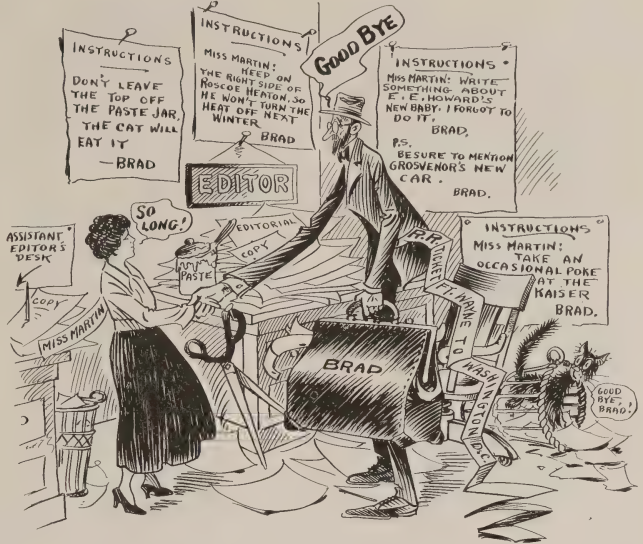 INSTRUCTIONS
DON'T LEAVE
THE TOP OFF
THE PASTE JAR,
THE CAT WILL
EAT IT
—BRAD
INSTRUCTIONS
MISS MARTIN:
KEEP ON
THE RIGHT SIDE OF
ROSCOE HEATON, SO
HE WON'T TURN THE
HEAT OFF NEXT
WINTER
BRAD
GOOD BYE
INSTRUCTIONS
MISS MARTIN: WRITE
SOMETHING ABOUT
E. E. HOWARD'S
NEW BABY. I FORGOT TO
DO IT.
BRAD.
P.S.
BESURE TO MENTION
GROSVENOR'S NEW
CAR.
BRAD.
EDITOR
SO
LONG!
ASSISTANT
EDITOR'S
DESK
COPY
MISS MARTIN
PASTE
EDITORIAL
COPY
R.R. TICKET FT. WAYNE TO WASHINGTON D.C.
BRAD
INSTRUCTIONS
MISS MARTIN:
TAKE AN
OCCASIONAL POKE
AT THE
KAISER
BRAD.
GOOD
BYE,
BRAD!